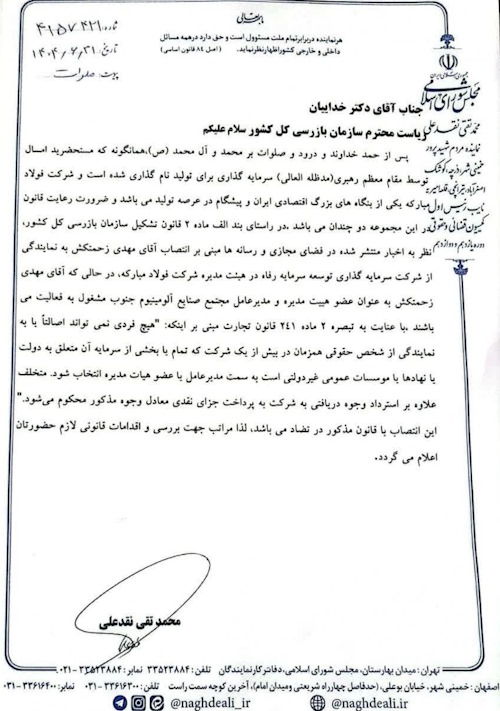 باسمه تعالی
هر نماینده در برابر تمام ملت مسؤول است و حق دارد در همه مسائل
داخلی و خارجی کشور اظهار نظر نماید. (اصل ۸۴ قانون اساسی)
شماره: ۴۱۵۷۴۲۱
تاریخ: ۱۴۰۴/۶/۳۱
پیوست: صلوات
جمهوری اسلامی ایران
مجلس شورای اسلامی
محمدتقی نقدعلی
نماینده مردم شهیدپرور
خمینی شهر، درچه، کوشک
اصغرآباد، تیرانچی، قلعه امیریه
نایب رئیس اول
کمیسیون قضائی و حقوقی
دوره یازدهم و دوازدهم
جناب آقای دکتر خداییان
ریاست محترم سازمان بازرسی کل کشور سلام علیکم
پس از حمد خداوند و درود و صلوات بر محمد و آل محمد (ص)، همانگونه که مستحضرید امسال
توسط مقام معظم رهبری(مدظله العالی) سرمایه گذاری برای تولید نام گذاری شده است و شرکت فولاد
مبارکه یکی از بنگاه های بزرگ اقتصادی ایران و پیشگام در عرصه تولید می باشد و ضرورت رعایت قانون
در این مجموعه دو چندان می باشد .در راستای بند الف ماده ۲ قانون تشکیل سازمان بازرسی کل کشور،
نظر به اخبار منتشر شده در فضای مجازی و رسانه ها مبنی بر انتصاب آقای مهدی زحمتکش به نمایندگی
از شرکت سرمایه گذاری توسعه سرمایه رفاه در هیئت مدیره شرکت فولاد مبارکه، در حالی که آقای مهدی
زحمتکش به عنوان عضو هییت مدیره و مدیرعامل مجتمع صنایع آلومینیوم جنوب مشغول به فعالیت می
باشند ،با عنایت به تبصره ۲ ماده ۲۴۱ قانون تجارت مبنی بر اینکه: "هیچ فردی نمی تواند اصالتاً یا به
نمایندگی از شخص حقوقی همزمان در بیش از یک شرکت که تمام یا بخشی از سرمایه آن متعلق به دولت
یا نهادها یا موسسات عمومی غیردولتی است به سمت مدیرعامل یا عضو هیات مدیره انتخاب شود. متخلف
علاوه بر استرداد وجوه دریافتی به شرکت به پرداخت جزای نقدی معادل وجوه مذکور محکوم می‌شود."
این انتصاب با قانون مذکور در تضاد می باشد، لذا مراتب جهت بررسی و اقدامات قانونی لازم حضورتان
اعلام می گردد.
محمد تقی نقدعلی
تهران: میدان بهارستان، مجلس شورای اسلامی، دفاتر کار نمایندگان تلفن: ۳۳۵۲۳۸۸۴ نمابر: ۳۳۵۲۳۸۸۴-۰۲۱
اصفهان: خمینی شهر، خیابان بوعلی، (حدفاصل چهارراه شریعتی و میدان امام)، آخرین کوچه سمت راست تلفن: ۳۳۶۱۶۳۰۰-۰۳۱ نمابر: ۳۳۶۱۶۴۰۰-۰۳۱
@naghdeali_ir @naghdeali.ir